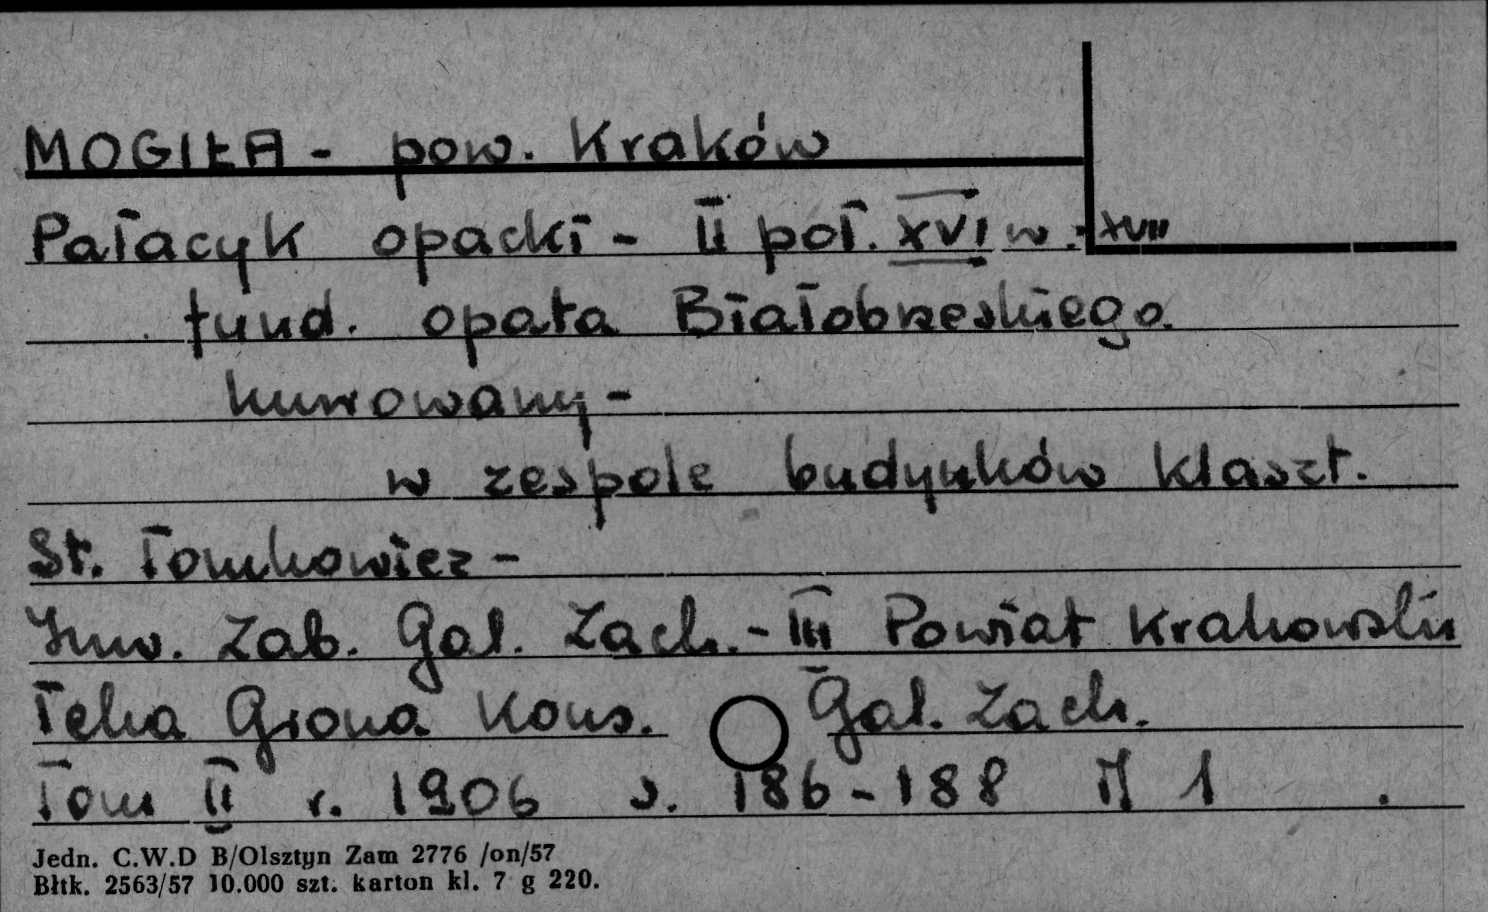 MOGIŁA - pow. Kraków
Pałacyk opacki - II poł. XVI w. - XVII
fund. opata Białobrzeskiego
murowany -
w zespole budynków klaszt.
St. Tomkowicz -
Inw. Zab. Gal. Zach. - III Powiat Krakowski
Teka Grona Kons. Gal. Zach.
Tom II r. 1906 s. 186-188 1
Jedn. C.W.D B/Olsztyn Zam 2776 /on/57
Błtk. 2563/57 10.000 szt. karton kl. 7 g 220.